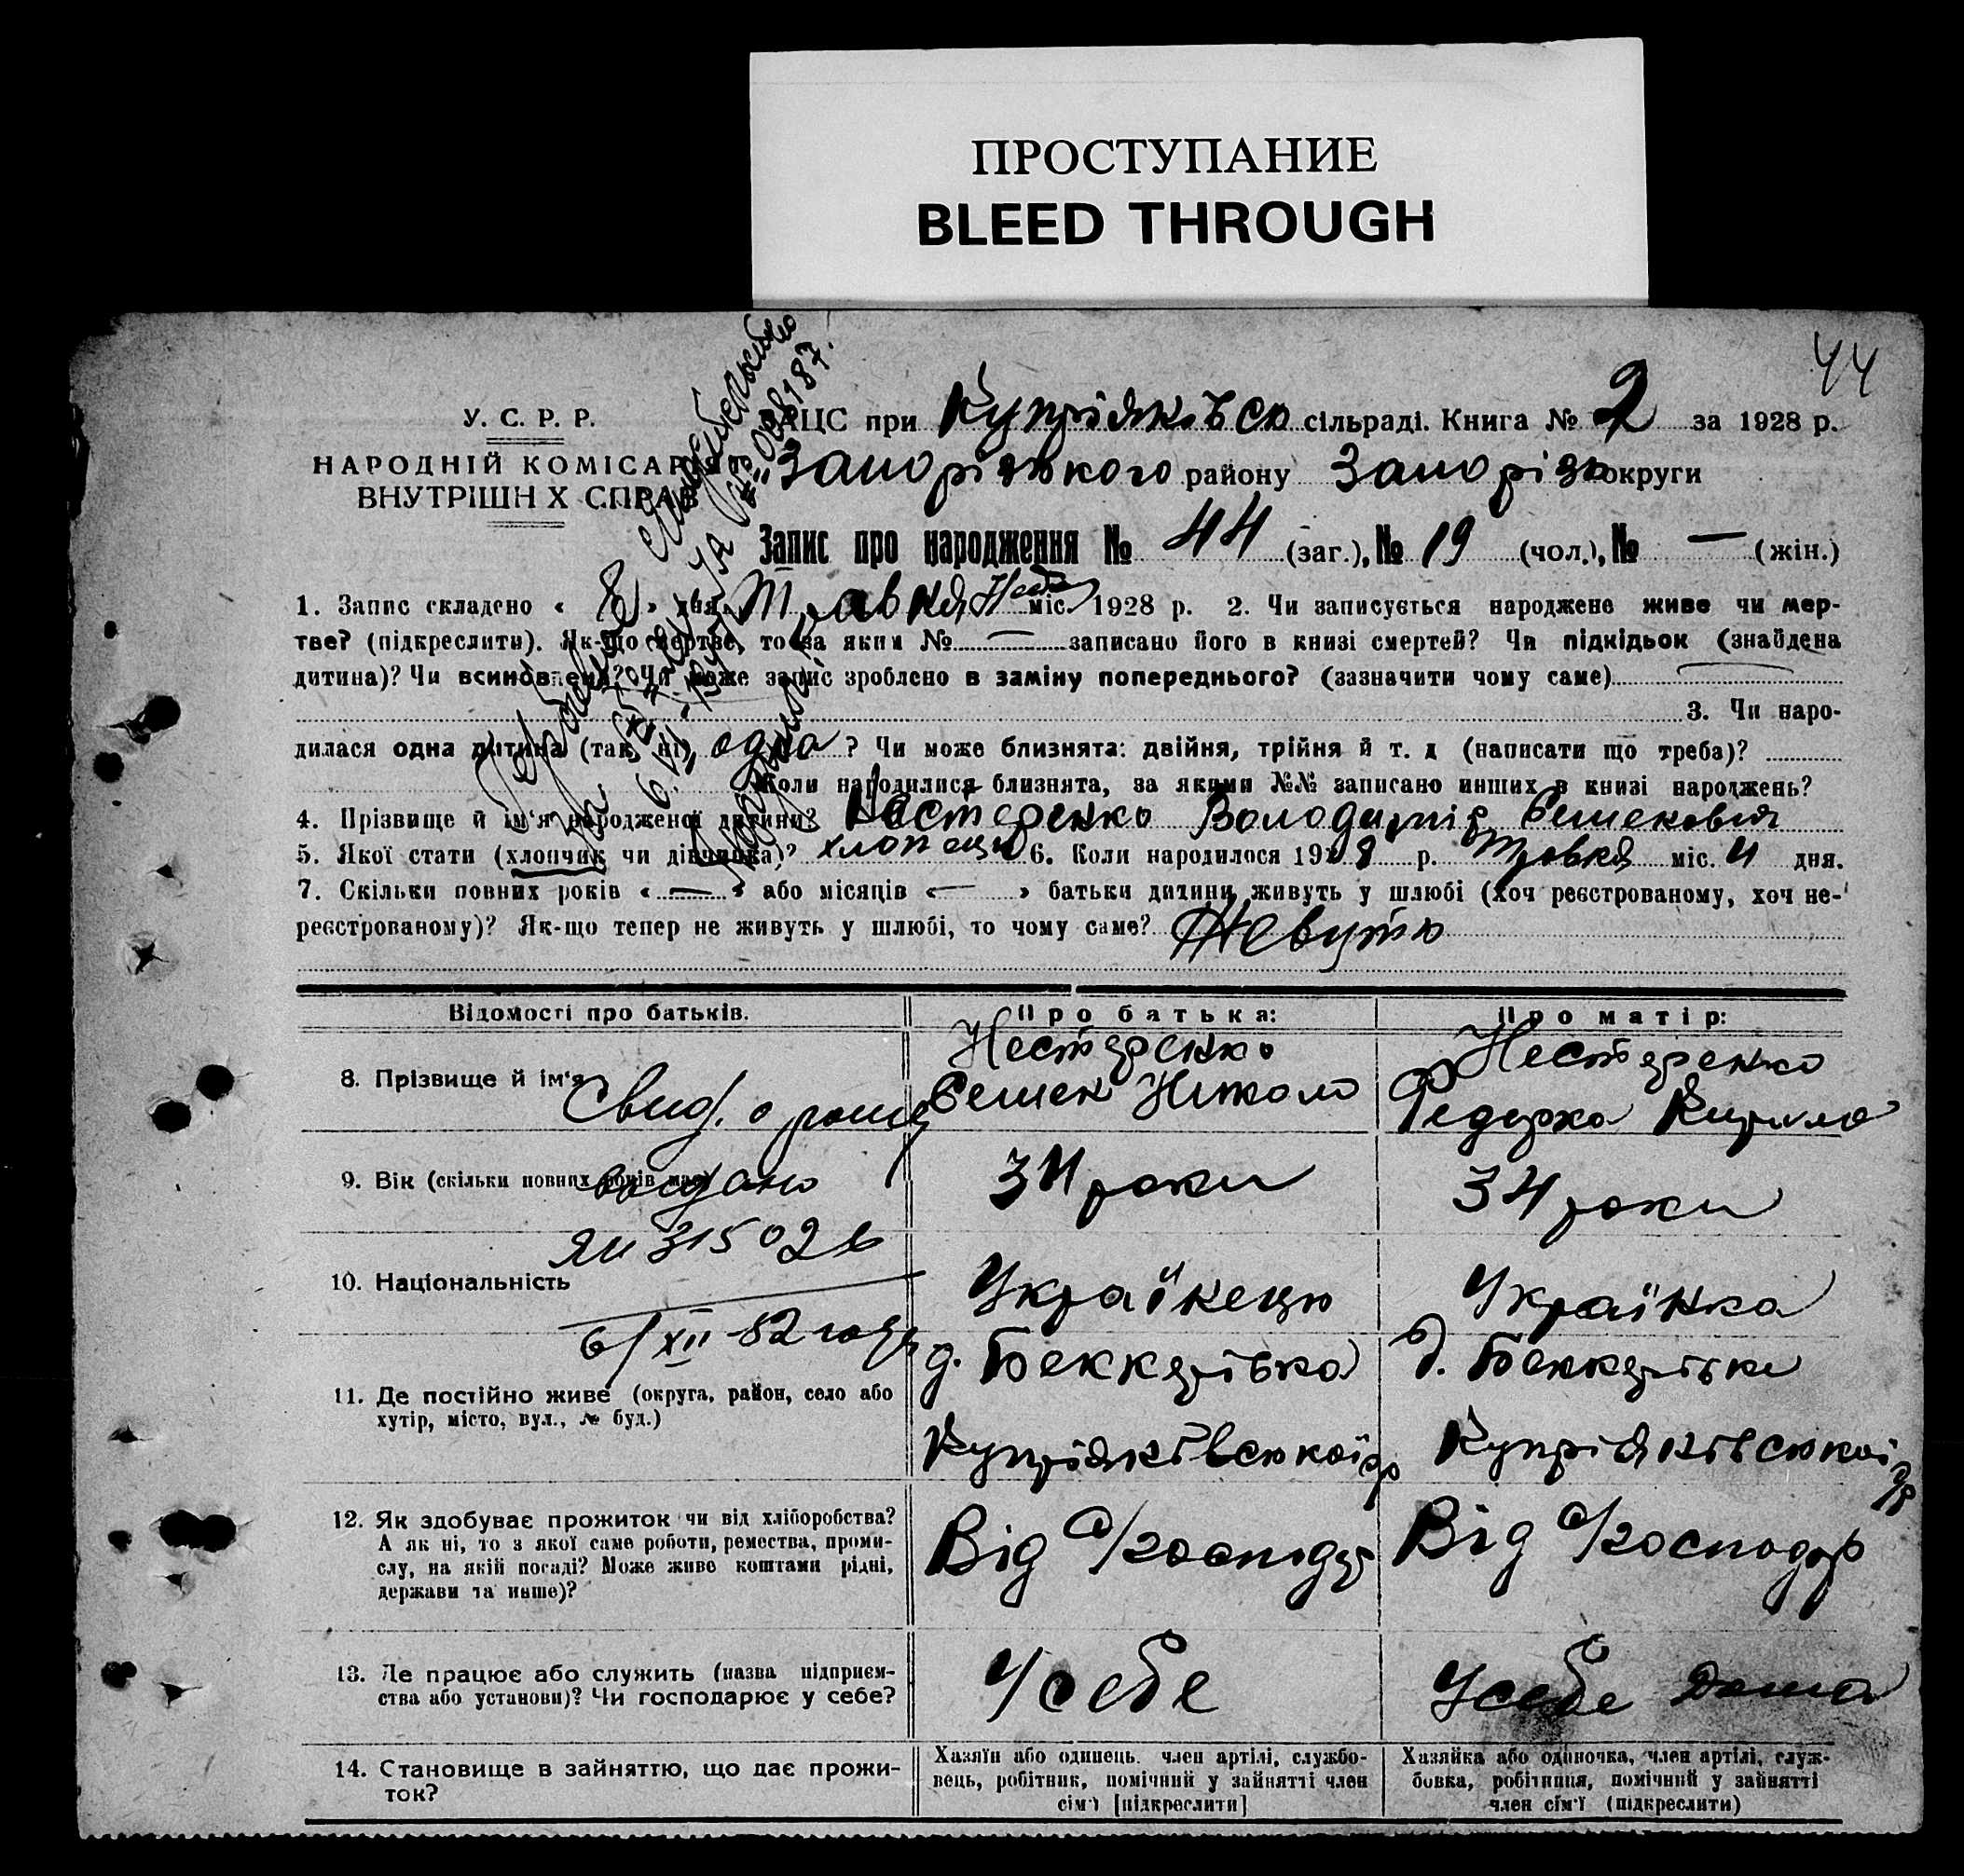 ПРОСТУПАНИЕ
BLEED THROUGH
44
У. С. Р. Р.
НАРОДНІЙ КОМІСАРІЯТ
ВНУТРІШН Х СПРАВ
ЗАЦС при Купріянівсь сільраді. Книга № 2 за 1928 р.
Запорізького району Запорізь округи
Запис про народження № 44 (заг.), № 19 (чол.), № — (жін.)
1. Запис складено « 8 » дня Травня міс. 1928 р. 2. Чи записується народжене живе чи мер-
тве? (підкреслити). Як-що мертве, то за яким № — записано його в книзі смертей? Чи підкідьок (знайдена
дитина)? Чи всиновлена? Чи може запис зроблено в заміну попереднього? (зазначити чому саме)
3. Чи наро-
дилася одна дитина (так, ні), одна ? Чи може близнята: двійня, трійня й т. д (написати що треба)?
Коли народилися близнята, за якими №№ записано инших в книзі народжень?
4. Прізвище й ім'я народженої дитини? Нестеренко Володимір Семенович
5. Якої стати (хлопчик чи дівчинка)? хлопець 6. Коли народилося 1928 р. Травня міс. 4 дня.
7. Скільки повних років « — » або місяців « — » батьки дитини живуть у шлюбі (хоч реєстрованому, хоч не-
реєстрованому)? Як-що тепер не живуть у шлюбі, то чому саме? Жевуть
Відомості про батьків.
Про батька:
Про матір:
8. Прізвище й ім'я
Нестеренко
Семен Николо
Нестеренко
Федорка Кирило
Свид. о рожд
выдано
ЯИ 315026
6/XII-52 года
9. Вік (скільки повних років має)
34 роки
34 роки
10. Національність
Українець
Українка
11. Де постійно живе (округа, район, село або
хутір, місто, вул., № буд.)
д. Беккерівка
Купріянівської
д. Беккерівка
Купріянівської
12. Як здобуває прожиток чи від хліборобства?
А як ні, то з якої саме роботи, ремества, проми-
слу, на якій посаді? Може живе коштами рідні,
держави та инше)?
Від с/господр
Від с/господр
13. Де працює або служить (назва підприєм-
ства або установи)? Чи господарює у себе?
У себе
У себе дома
14. Становище в зайняттю, що дає прожи-
ток?
Хазяїн або одинець. член артілі, службо-
вець, робітник, помічний у зайнятті член
сім'ї [підкреслити]
Хазяйка або одиночка, член артілі, служ-
бовка, робітниця, помічний у зайнятті
член сім'ї (підкреслити)